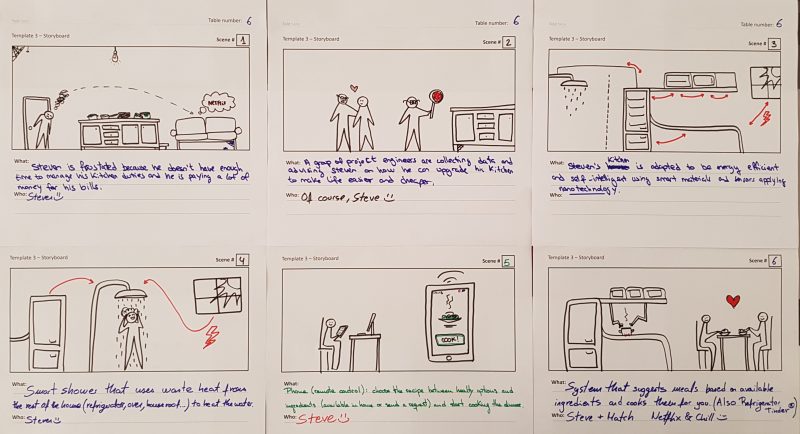 Table number: 6
Template 3 – Storyboard
Scene # 1
NETFLIX
What:
Steven is frustated because he doesn't have enough
time to manage his kitchen duties and he is paying a lot of
money for his bills.
Who:
Steven
Table number: 6
Template 3 – Storyboard
Scene # 2
What:
A group of project engineers are collecting data and
advising steven on how he can upgrade his kitchen
to make life easier and cheaper.
Who:
Of course, Steve
Table number: 6
Template 3 – Storyboard
Scene # 3
What:
Kitchen
Steven's is adapted to be energy efficient
and self-intelligent using smart materials and sensors applying
nanotechnology.
Who:
Template 3 – Storyboard
Scene # 4
What:
Smart shower that uses waste heat from
the rest of the house (refrigerator, oven, house roof...) to heat the water.
Who:
Steven
Template 3 – Storyboard
Scene # 5
COOK!
What:
Phone (remote control): choose the recipe between healthy options and
ingredients (available in home or send a request) and start cooking the dinner.
Who:
Steve
Template 3 – Storyboard
Scene # 6
What:
System that suggests meals based on available
ingredients and cooks them for you. (Also Refrigerator
Tinder ®)
Who:
Steve + Match Netflix & Chill